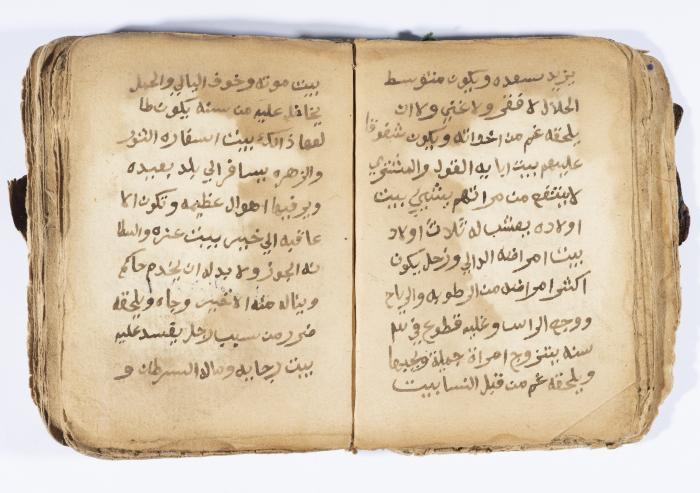 يزيد سعده ويكون متوسط
الحلال لا فقر ولا غني ولا ان
يلحقه غم من اخواته ويكون شفوقا
عليهم بيت ابايه القول والمشتري
لا ينتفع من مراتهم بشي بيت
اولاده يعشب له ثلاث اولاد
بيت امراضه الدالي وزحل يكون
اكثر امراضه من الرطوبه والرياح
ووجع الراس وعليه قطوع في
سنه يتزوج امراة جميلة ويحبها
ويلحقه غم من قبل النسا بيت
بيت موته وخوف اليالي والحمل
يخاف عليه من سنة يكون
ذالك بيت اسفاره الثور
والزهره يسافر الي بلد بعيده
ويرفيها اهوال عظيمه وتكون الا
عاقبه الي خير بيت عزه والسلطا
نه الجوز ولا بد له ان يخدم حاكم
ويناله منه الا خير وجاه ويلحقه
ضرر من سبب لاجل يفسد عليه
بيت رجايه وماله السرطان و